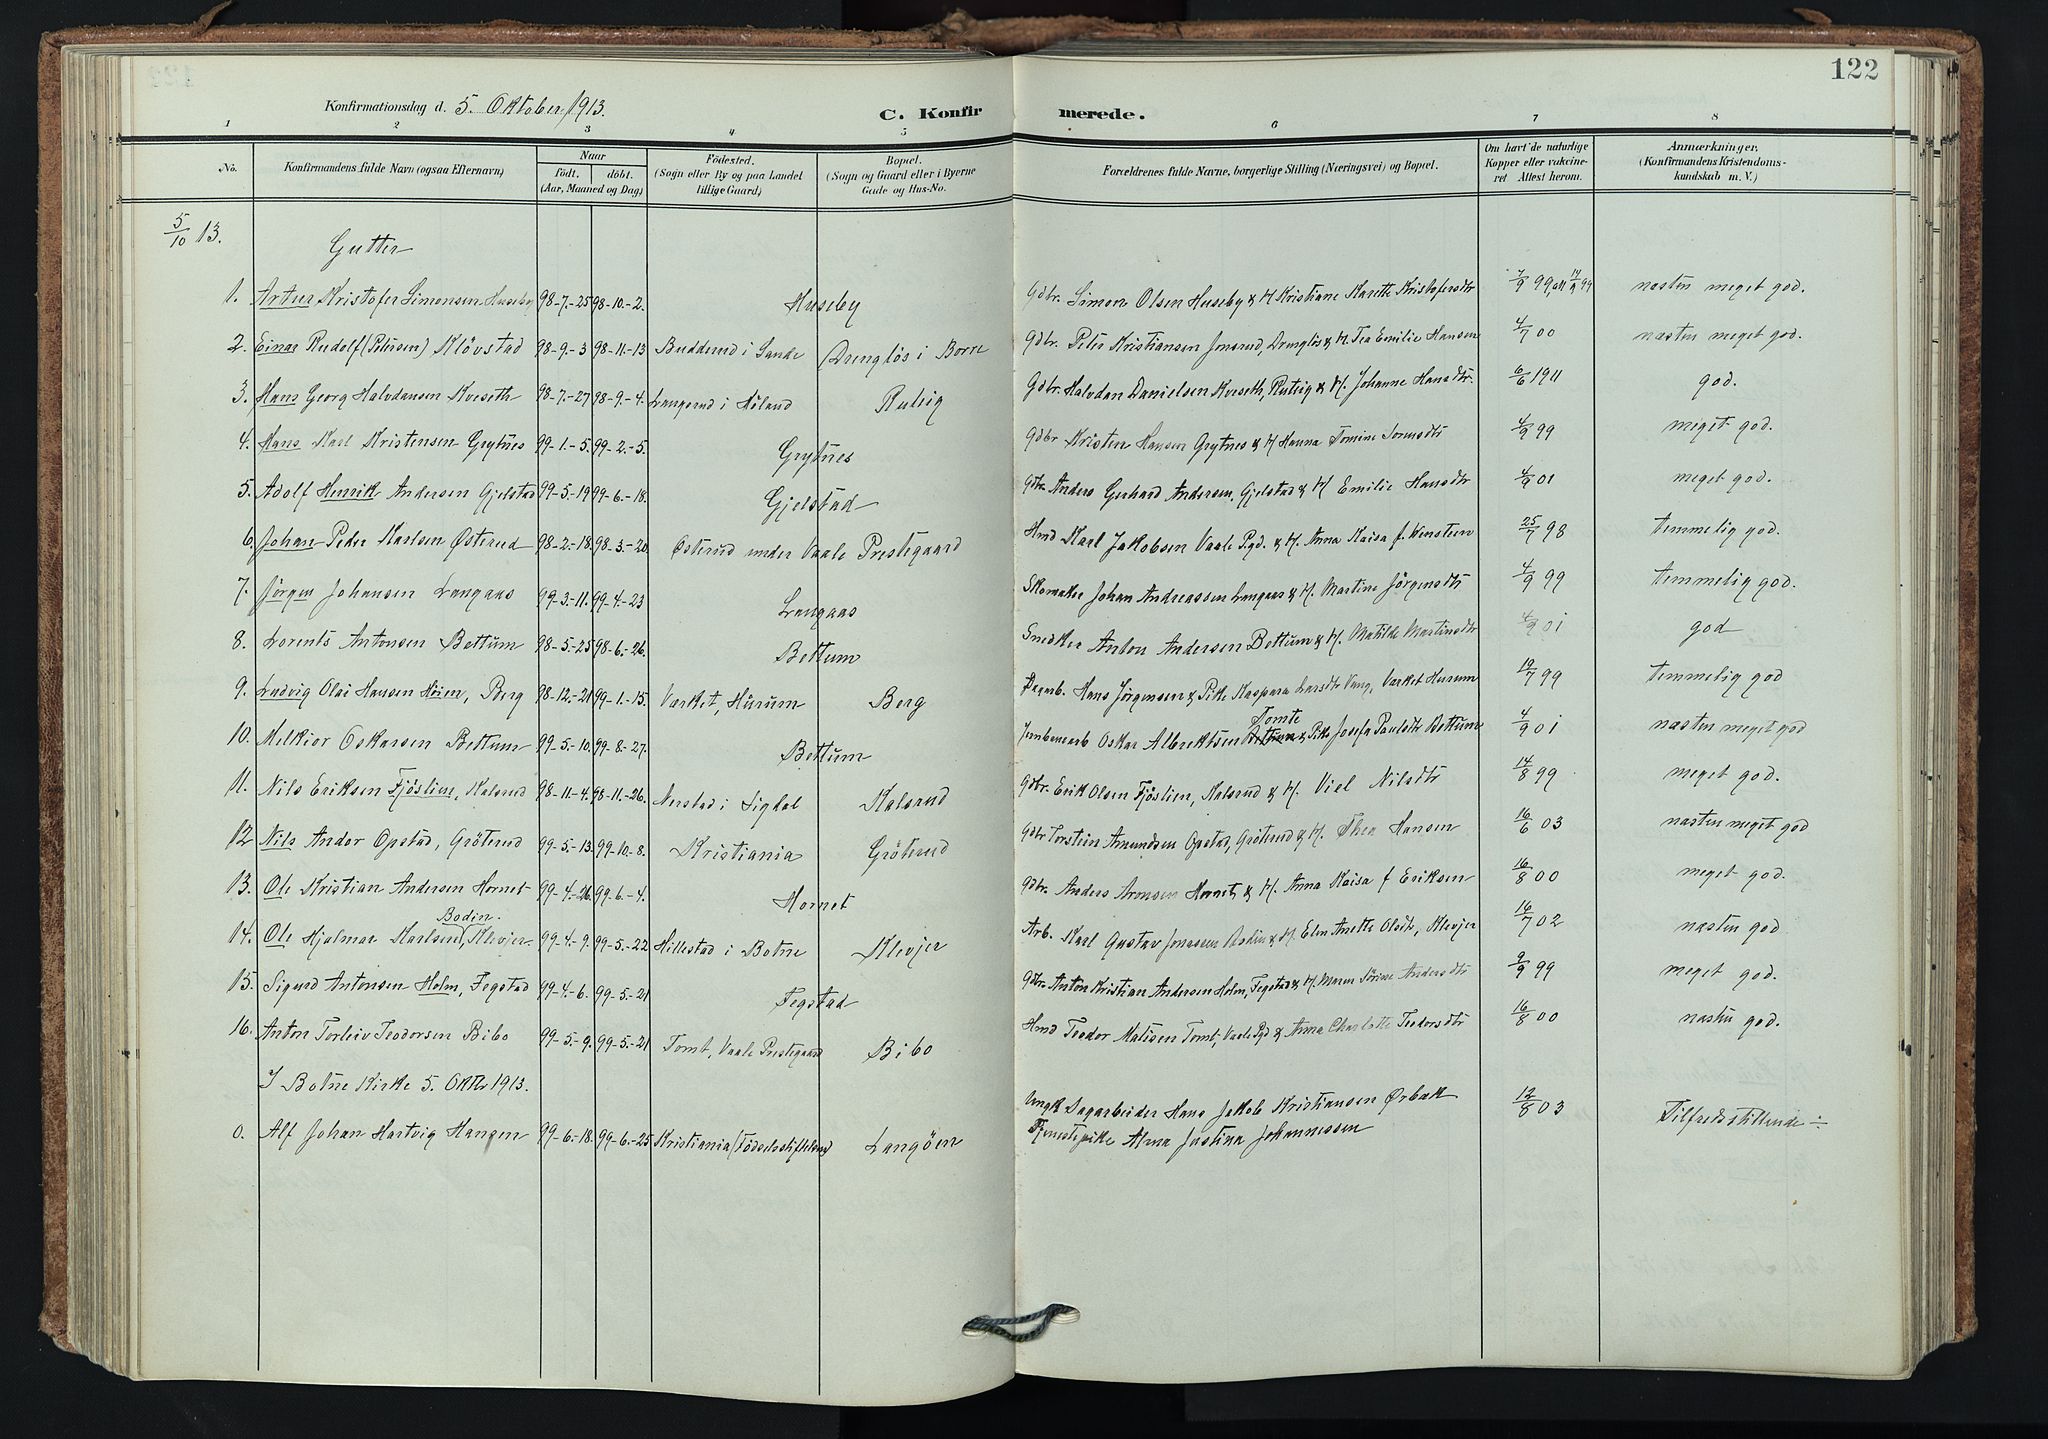 122
Konfirmationsdag d. 5. Oktober 1913.
C. Konfirmerede.
1 2 3 4 5 6 7 8
No. Konfirmandens fulde Navn (ogsaa Efternavn) Naar født. døbt. (Aar, Maaned og Dag) Fødested. (Sogn eller By og paa Landet tillige Gaard) Bopæl. (Sogn og Gaard eller i Byerne Gade og Hus-No. Forældrenes fulde Navne, borgerlige Stilling (Næringsvei) og Bopæl. Om havt de naturlige Kopper eller vakcineret. Attest herom. Anmærkninger. (Konfirmandens Kristendomskundskab m. V.)
5/10 13.
Gutter
1. Artur Kristofer Simonsen Huseby 98-7-25 98-10-2. Huseby Gdbr. Simon Olsen Huseby & H. Kristiane Marette Kristofersdtr 99 næsten meget god.
2. Einar Rudolf (Petersen) Klövstad 98-9-3 98-11-13 Budderud i Sande Drenglös i Borre Gdbr. Peter Kristiansen Drenglös & H. Tea Emilie Hansen 4/7 00 næsten meget god.
3. Hans Georg Halvdansen Kveseth 98-7-27 98-9-4. Langerud i Høland Rutvig Gdbr. Halvdan Danielsen Kveseth, Rutvig & H. Johanne Hansdtr. 6/6 1911 god.
4. Hans Karl Kristensen Grytnes 99-1-5. 99-2-5. Grytnes Gdbr Kristen Hansen Grytnes & H Hanna Tomine 4/9 99 meget god.
5. Adolf Henrik Andersen Gjelstad 99-5-19 99-6-18. Gjelstad Gdbr. Anders Gerhard Andersen, Gjelstad & H Emilie Hansdtr 4/9 01 meget god.
6. Johan Peder Karlsen Østerud 98-2-18. 98-3-20. Østerud under Vaale Prestegaard Hmd Karl Jakobsen Vaale Pgd. & H. Anna Kaisa f. 25/7 98 temmelig god.
7. Jörgen Johansen Langaas 99-3-11. 99-4-23 Langaas Skomaker Johan Andreassen Langaas & H. Martine Jörgensdtr 4/9 99 temmelig god.
8. Lorents Antonsen Bettum 98-5-25 98-6-26. Bettum Snedker Anton Andersen Bettum & H. Matilde Martinsdtr 4/9 01 god
9. Ludvig Olai Hansen Höien, Berg 98-12-21 99-1-15. Værket, Hurum Berg Dagarb. Hans Jörgensen & Pike Kaspara Larsdtr Vang, Værket Hurum 19/7 99 temmelig god
10. Melkior Oskarsen Bettum 99-5-10. 99-8-27. Bettum Jernbanearb Oskar Albrektsen Tomte & Pike Josefa Paulsdtr Bettum 4/9 01 næsten meget god
11. Nils Eriksen Fjöslien, Kalsrud 98-11-4. 98-11-26. Nerstad i Sigdal Kalsrud Gdbr. Erik Olsen Fjöslien, Kalsrud & H. Viel Nilsdtr 14/8 99 meget god.
12 Nils Andor Opstad, Gröterud 99-5-13. 99-10-8. Kristiania Gröterud Gdbr Torstein Amundsen Opstad, Gröterud & H. Thea Hansen 16/6 03 næsten meget god
13. Ole Kristian Andersen Hornet 99-4-26. 99-6-4. Hornet Gdbr. Anders Aronsen Hornet & H. Anna Kaisa f Eriksen 16/8 00 meget god.
Bodin.
14. Ole Hjalmar Karlsen, Klevjer 99-4-9. 99-5-22 Hillestad i Botne Klevjer Arb. Karl Gustav Jonassen Bodin & H. Elen Anette Olsdtr, Klevjer 16/7 02 næsten god
15. Sigurd Antonsen Holm, Fegstad 99-4-6. 99-5-21 Fegstad Gdbr. Anton Kristian Andersen Holm, Fegstad & H. Maren Sörine Andersdtr 9/9 99 meget god.
16. Anton Torleiv Teodorsen Bibo 99-5-9. 99-5-21 Tomt, Vaale Prestegaard Bibo Hmd Teodor Matisen Tomt, Vaale Pgd & Anna Charlotte Teodorsdtr 16/8 00 næsten god.
I Botne Kirke 5. Oktbr 1913.
0. Alf Johan Hartvig Hansen 99-6-18. 99-6-25. Kristiania (Födselsstiftelsen) Langöen Ungk Dagarbeider Hans Jakob Kristiansen Ørbæk 12/8 03 Tilfredsstillende ÷
Tjenestepike Alma Justina Johannessen